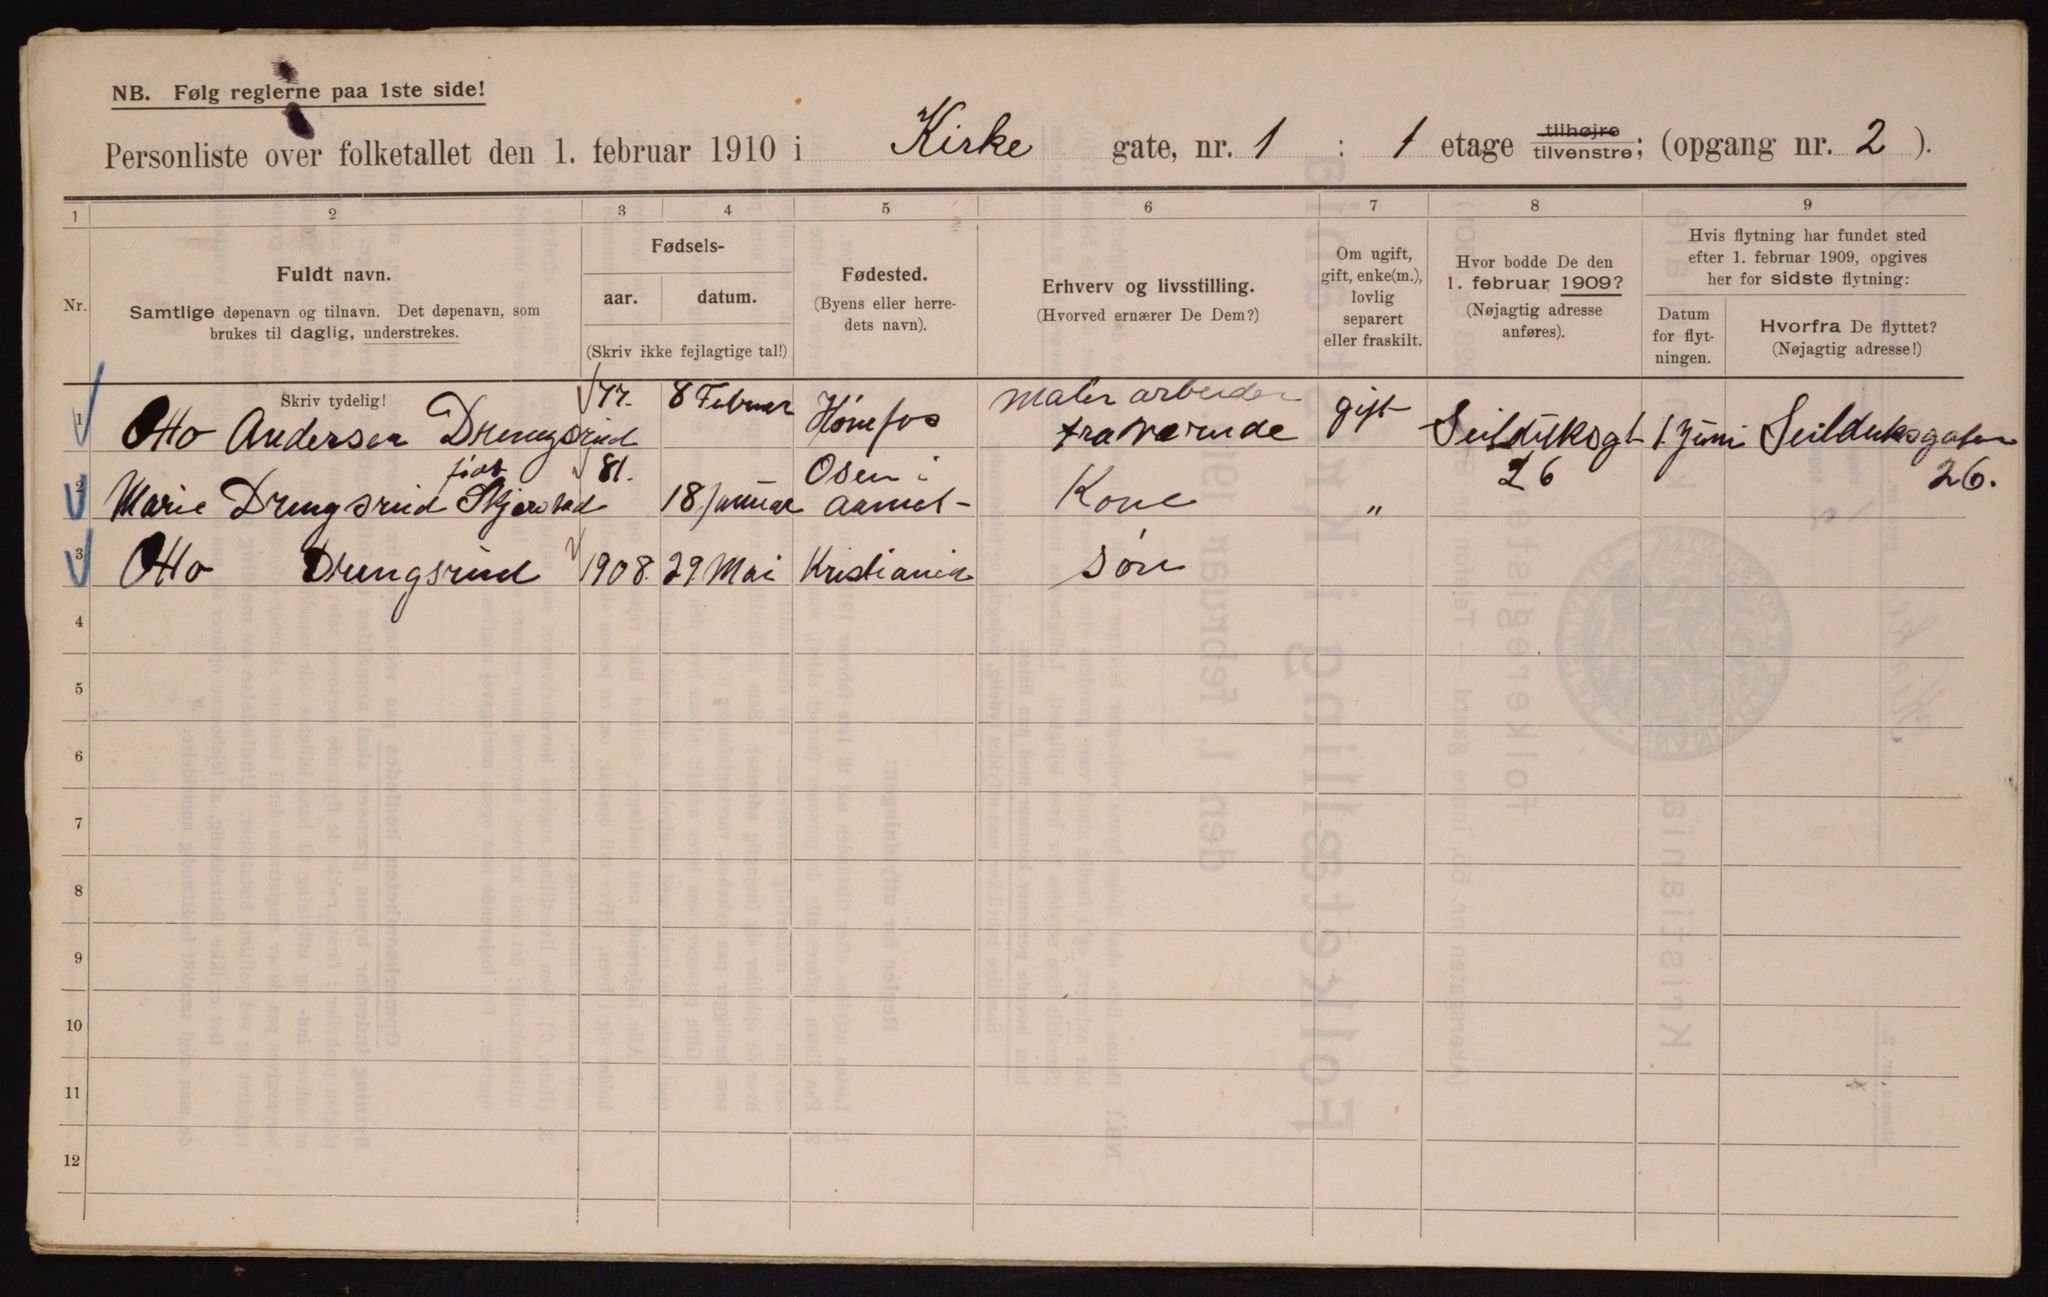 NB. Følg reglerne paa 1ste side!
Personliste over folketallet den 1. februar 1910 i Kirke gate, nr. 1 : 1 etage tilhøjre tilvenstre; (opgang nr. 2 ).
1 2 3 4 5 6 7 8 9
Nr.
Fuldt navn.
Samtlige døpenavn og tilnavn. Det døpenavn, som
brukes til daglig, understrekes.
Skriv tydelig!
Fødsels-
aar. datum.
(Skriv ikke fejlagtige tal!)
Fødested.
(Byens eller herre-
dets navn).
Erhverv og livsstilling.
(Hvorved ernærer De Dem?)
Om ugift,
gift, enke(m.),
lovlig
separert
eller fraskilt.
Hvor bodde De den
1. februar 1909?
(Nøjagtig adresse
anføres).
Hvis flytning har fundet sted
efter 1. februar 1909, opgives
her for sidste flytning:
Datum
for flyt-
ningen.
Hvorfra De flyttet?
(Nøjagtig adresse!)
1 Otto Andersen Drengsrud 77. 8 Februar Hønefos Maler arbeider fraværende gift Seilduksgt 26 1 Juni Seilduksgaten 26.
2 Marie Drengsrud født 81. 18 Januar Osen i Aamot - Kone „
3 Otto Drengsrud 1908. 29 Mai Kristiania søn
4
5
6
7
8
9
10
11
12